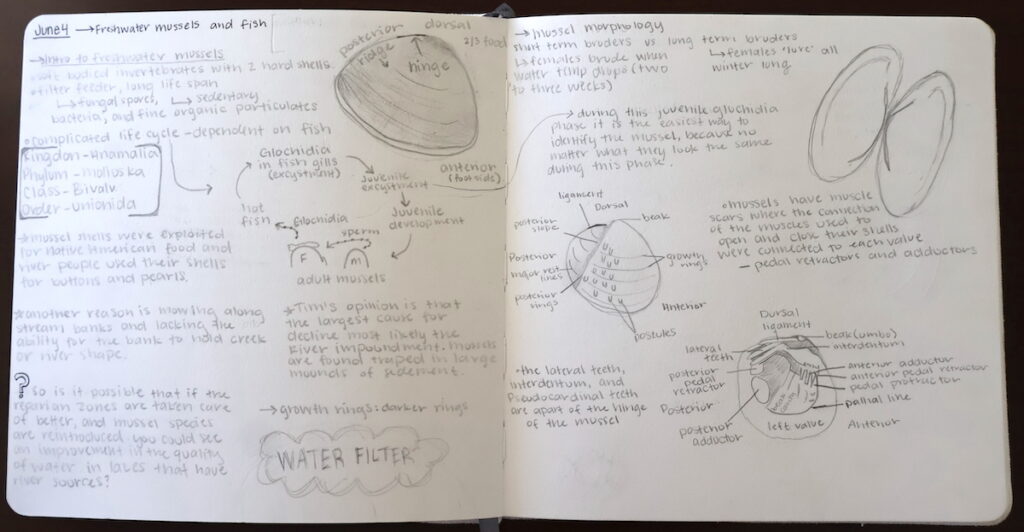 June 4 → Freshwater mussels and fish
→ Intro to freshwater mussels
soft bodied invertebrates with 2 hard shells.
filter feeder, long life span
↳ fungal spores, ↳ sedentary
bacteria, and fine organic particulates
complicated life cycle - dependent on fish
Kingdom - Anamalia
Phylum - Molluska
Class - Bivalv
Order - Unionida
posterior
ridge
dorsal
2/3 food
hinge
anterior
(foot side)
Glochidia
in fish gills
(excystment)
Juvenile
excystment
Juvenile
development
host
fish
Glochidia
sperm
F
M
adult mussels
* mussel shells were exploited
for Native American food and
river people used their shells
for buttons and pearls.
* another reason is mowing along
stream banks and lacking the
ability for the bank to hold creek
or river shape.
* Tim's opinion is that
the largest cause for
decline most likely the
River impoundment. Mussels
are found traped in large
mounds of sediment.
? so is it possible that if the
reparian zones are taken care
of better, and mussel species
are reintroduced you could see
an improvement in the quality
of water in lakes that have
river sources?
→ growth rings: darker rings
WATER FILTER
→ mussel morphology
short term bruders vs long term bruders
↳ females brude when
water temp drops (two
to three weeks)
↳ females "lure" all
winter long
→ during this juvenile glochidia
phase it is the easiest way to
identify the mussel, because no
matter what they look the same
during this phase.
ligament
Dorsal
beak
posterior
slope
Posterior
major rest
lines
posterior
rings
growth
rings
Anterior
postules
• mussels have muscle
scars where the connection
of the muscles used to
open and close their shells
were connected to each valve
— pedal retractors and adductors
• the lateral teeth,
interdentum, and
Pseudocardinal teeth
are apart of the hinge
of the mussel
Dorsal
ligament
beak (umbo)
interdentum
lateral
teeth
posterior
pedal
retractor
Posterior
posterior
adductor
anterior adductor
anterior pedal retractor
pedal protractor
pallial line
beak
cavity
left valve
Anterior